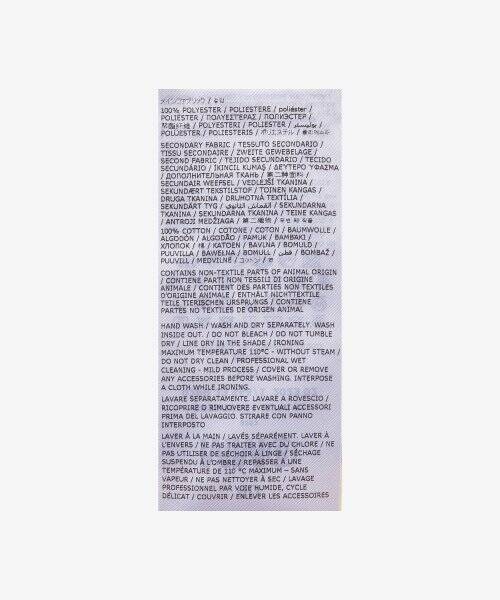 メインファブリック /
100% POLYESTER / POLIESTERE / poliéster /
POLIESTER / ΠΟΛΥΕΣΤΕΡΑΣ / ПОЛИЭСТЕР /
POLYESTERI / POLIESTER / بوليستر /
POLUESTER / POLIESTERIS / ポリエステル / 폴리에스터
SECONDARY FABRIC / TESSUTO SECONDARIO /
TISSU SECONDAIRE / ZWEITE GEWEBELAGE /
SECOND FABRIC / TEJIDO SECUNDARIO / TECIDO
SECUNDÁRIO / İKİNCİL KUMAŞ / ΔΕΥΤΕΡΟ ΥΦΑΣΜΑ
/ ДОПОЛНИТЕЛЬНАЯ ТКАНЬ / 第二种面料 /
SECUNDAIR WEEFSEL / VEDLEJŠÍ TKANINA /
SEKUNDÆRT TEKSTILSTOF / TOINEN KANGAS /
DRUGA TKANINA / DRUHOTNÁ TEXTÍLIA /
SEKUNDÄRT TYG / القماش الثانوي / SEKUNDARNA
TKANINA / SEKUNDARNA TKANINA / TEINE KANGAS
/ ANTROJI MEDŽIAGA / 第二種
100% COTTON / COTONE / COTON / BAUMWOLLE /
ALGODÓN / ALGODÃO / PAMUK / ΒΑΜΒΑΚΙ /
ХЛОПОК / 棉 / KATOEN / BAVLNA / BOMULD /
PUUVILLA / BAWEŁNA / BOMULL / قطن / BOMBAŽ /
PUUVILL / MEDVILNĖ / コットン / 면
CONTAINS NON-TEXTILE PARTS OF ANIMAL ORIGIN
/ CONTIENE PARTI NON TESSILI DI ORIGINE
ANIMALE / CONTIENT DES PARTIES NON TEXTILES
D'ORIGINE ANIMALE / ENTHÄLT NICHTTEXTILE
TEILE TIERISCHEN URSPRUNGS / CONTIENE
PARTES NO TEXTILES DE ORIGEN ANIMAL
HAND WASH / WASH AND DRY SEPARATELY. WASH
INSIDE OUT. / DO NOT BLEACH / DO NOT TUMBLE
DRY / LINE DRY IN THE SHADE / IRONING
MAXIMUM TEMPERATURE 110°C - WITHOUT STEAM /
DO NOT DRY CLEAN / PROFESSIONAL WET
CLEANING - MILD PROCESS / COVER OR REMOVE
ANY ACCESSORIES BEFORE WASHING. INTERPOSE
A CLOTH WHILE IRONING.
LAVARE SEPARATAMENTE. LAVARE A ROVESCIO /
RICOPRIRE O RIMUOVERE EVENTUALI ACCESSORI
PRIMA DEL LAVAGGIO. STIRARE CON PANNO
INTERPOSTO
LAVER À LA MAIN / LAVÉS SÉPARÉMENT. LAVER À
L'ENVERS / NE PAS TRAITER AVEC DU CHLORE / NE
PAS UTILISER DE SÉCHOIR À LINGE / SÉCHAGE
SUSPENDU À L'OMBRE / REPASSER À UNE
TEMPÉRATURE DE 110 °C MAXIMUM – SANS
VAPEUR / NE PAS NETTOYER À SEC / LAVAGE
PROFESSIONNEL PAR VOIE HUMIDE, CYCLE
DÉLICAT / COUVRIR / ENLEVER LES ACCESSOIRES